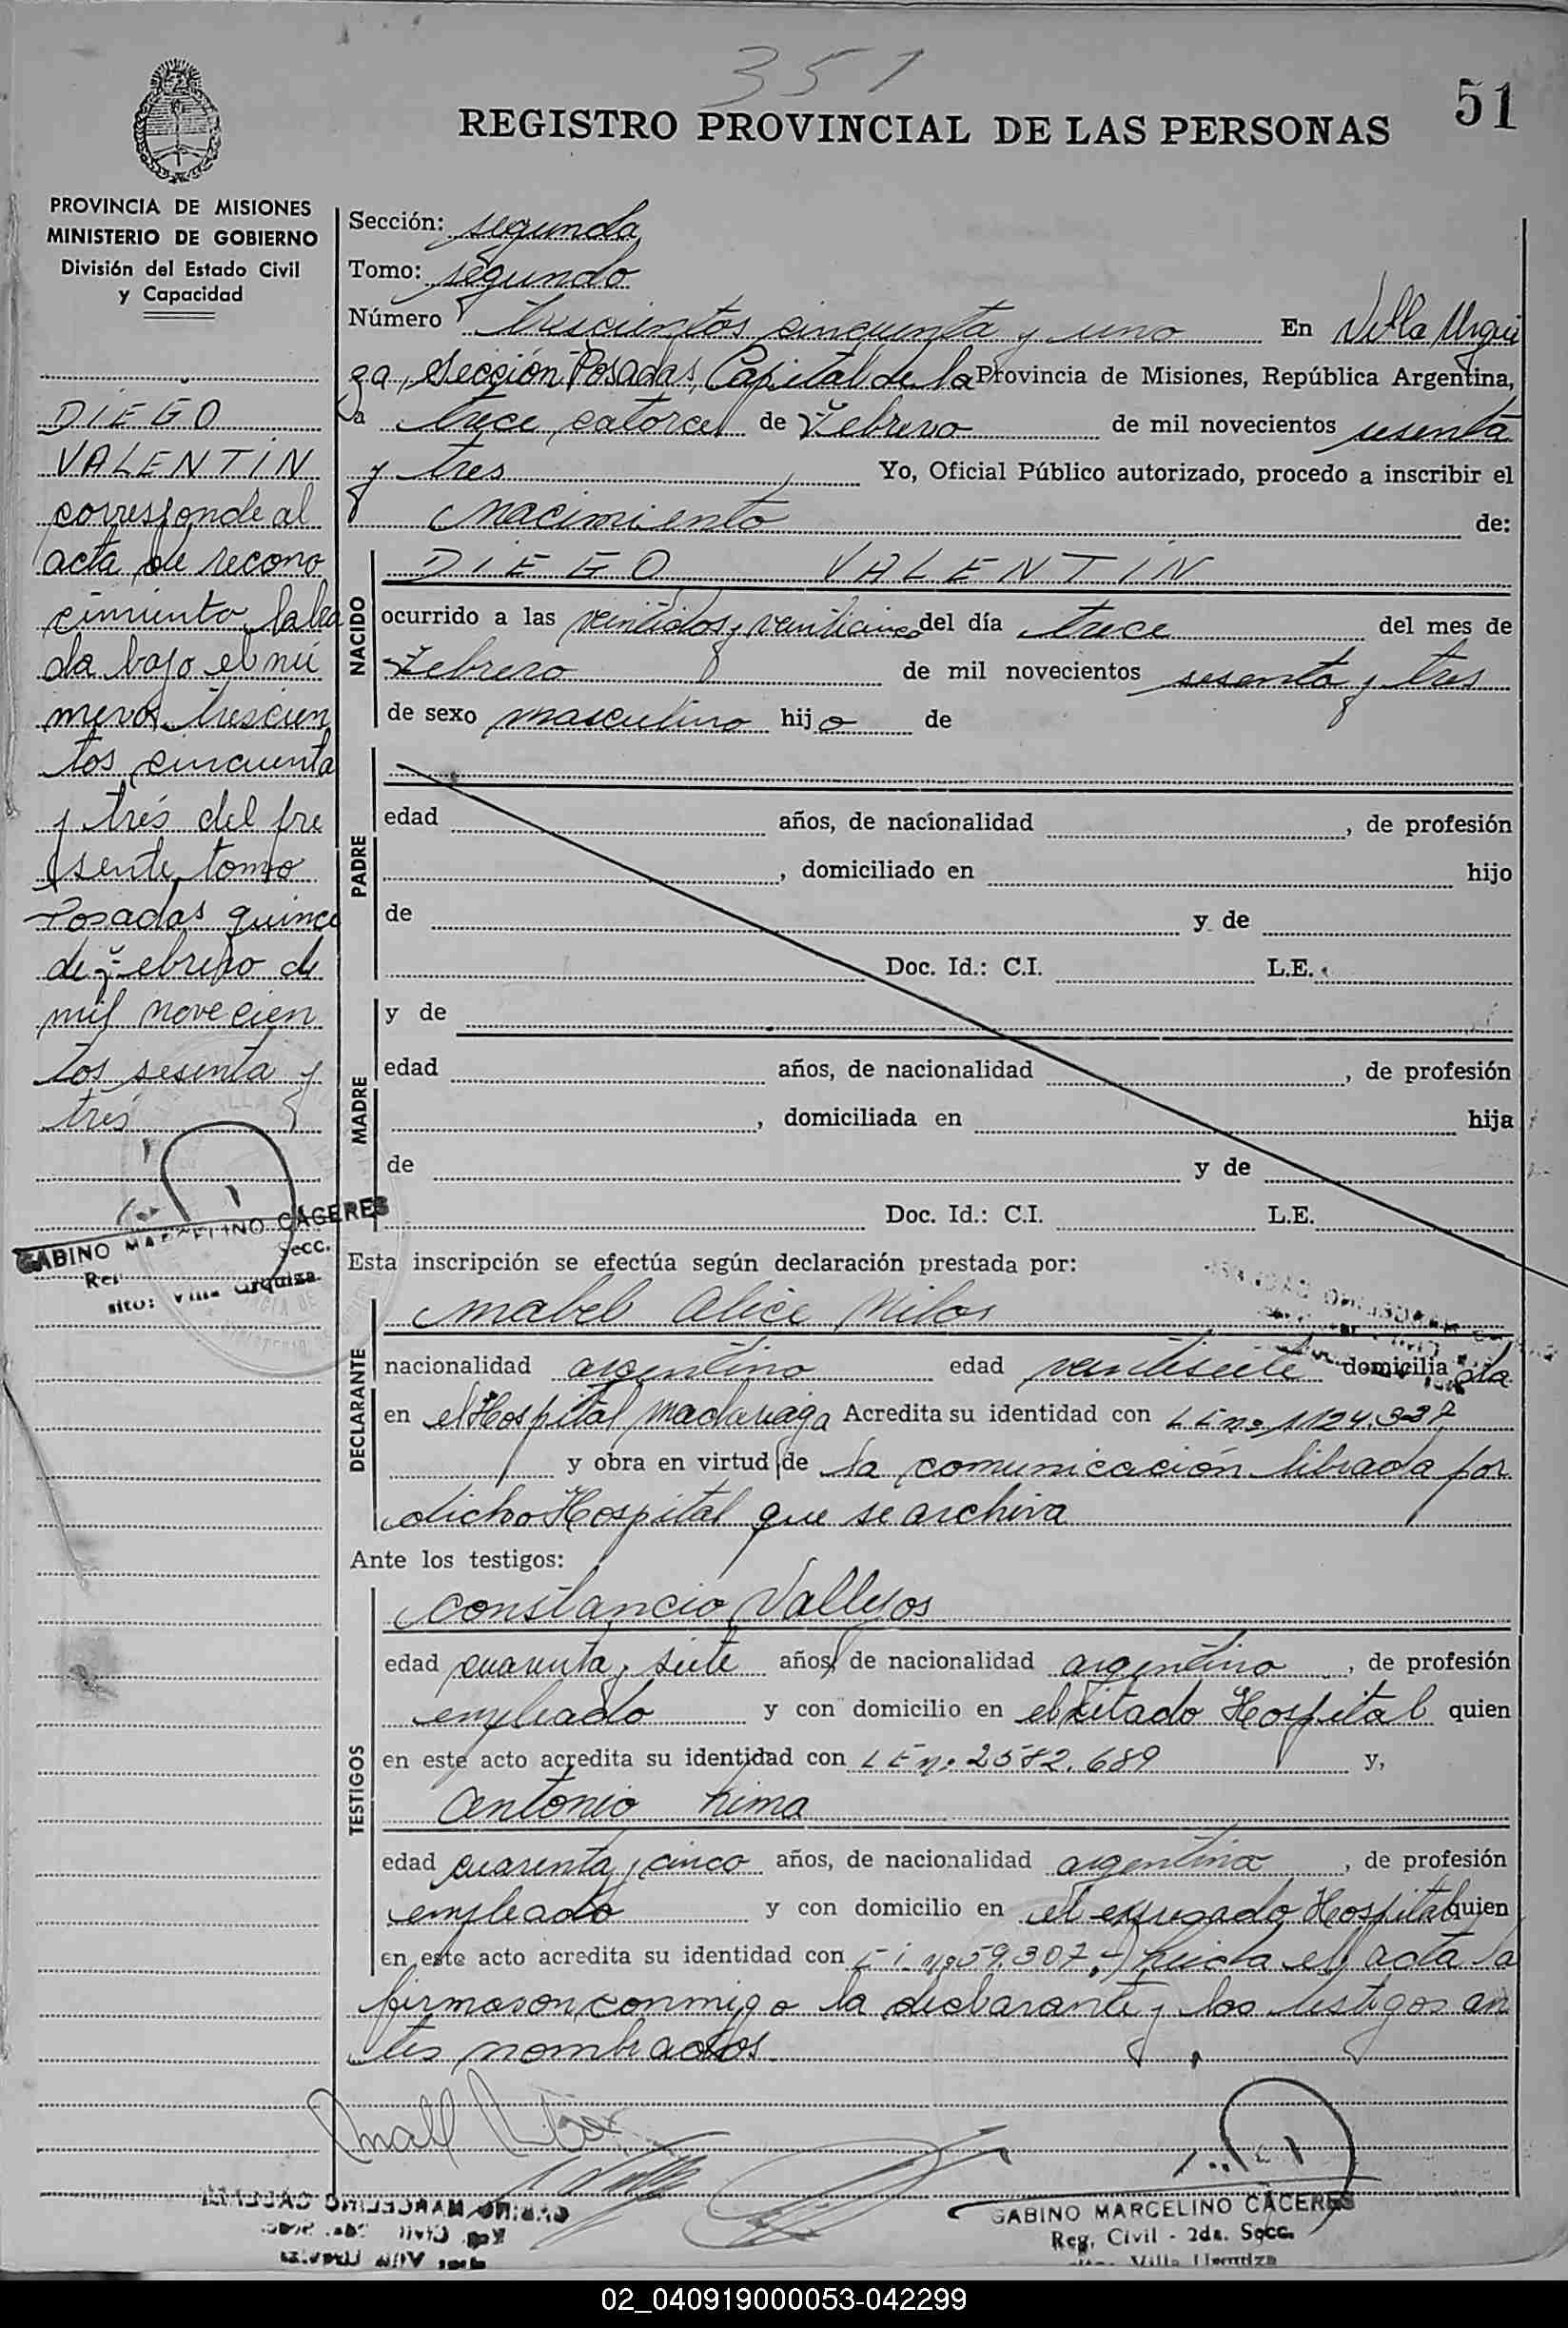 351
51
REGISTRO PROVINCIAL DE LAS PERSONAS
PROVINCIA DE MISIONES
MINISTERIO DE GOBIERNO
División del Estado Civil
y Capacidad
DIEGO
VALENTIN
corresponde al
acta de recono
cimiento labra
da bajo el nú
mero trescien
tos cincuenta
y trés del pre
sente tomo
Posadas quince
de Febrero de
mil novecien
tos sesenta y
trés
GABINO MARCELINO CACERES
Secc.
Villa Urquiza
Sección: segunda
Tomo: segundo
Número trescientos cinquenta y uno En Villa Urqui
za, Sección Posadas, Capital de la Provincia de Misiones, República Argentina,
a trece catorce de Febrero de mil novecientos sesenta
y tres Yo, Oficial Público autorizado, procedo a inscribir el
nacimiento de:
NACIDO
DIEGO VALENTIN
ocurrido a las veintidos y veinticinco del día trece del mes de
Febrero de mil novecientos sesenta y tres
de sexo masculino hijo de
PADRE
edad años, de nacionalidad , de profesión
, domiciliado en hijo
de y de
Doc. Id.: C.I. L.E.
MADRE
y de
edad años, de nacionalidad , de profesión
, domiciliada en hija
de y de
Doc. Id.: C.I. L.E.
Esta inscripción se efectúa según declaración prestada por:
DECLARANTE
Mabel Alice
nacionalidad argentino edad veintisiete domicilia da
en el Hospital Madariaga Acredita su identidad con L E nº
y obra en virtud de la comunicación librada por
dicho Hospital que se archiva
Ante los testigos:
TESTIGOS
Constancio Vallejos
edad cuarenta y siete años, de nacionalidad argentino , de profesión
empleado y con domicilio en el citado Hospital quien
en este acto acredita su identidad con L E nº 2582.689 y,
Antonio
edad cuarenta y cinco años, de nacionalidad argentina , de profesión
empleado y con domicilio en el expresado Hospital quien
en este acto acredita su identidad con nº 59.307.- leida el acta la
firmaron conmigo la declarante y los testigos an
tes nombrados
GABINO MARCELINO CACERES
Reg. Civil - 2da. Secc.
Villa Urquiza
02_040919000053-042299